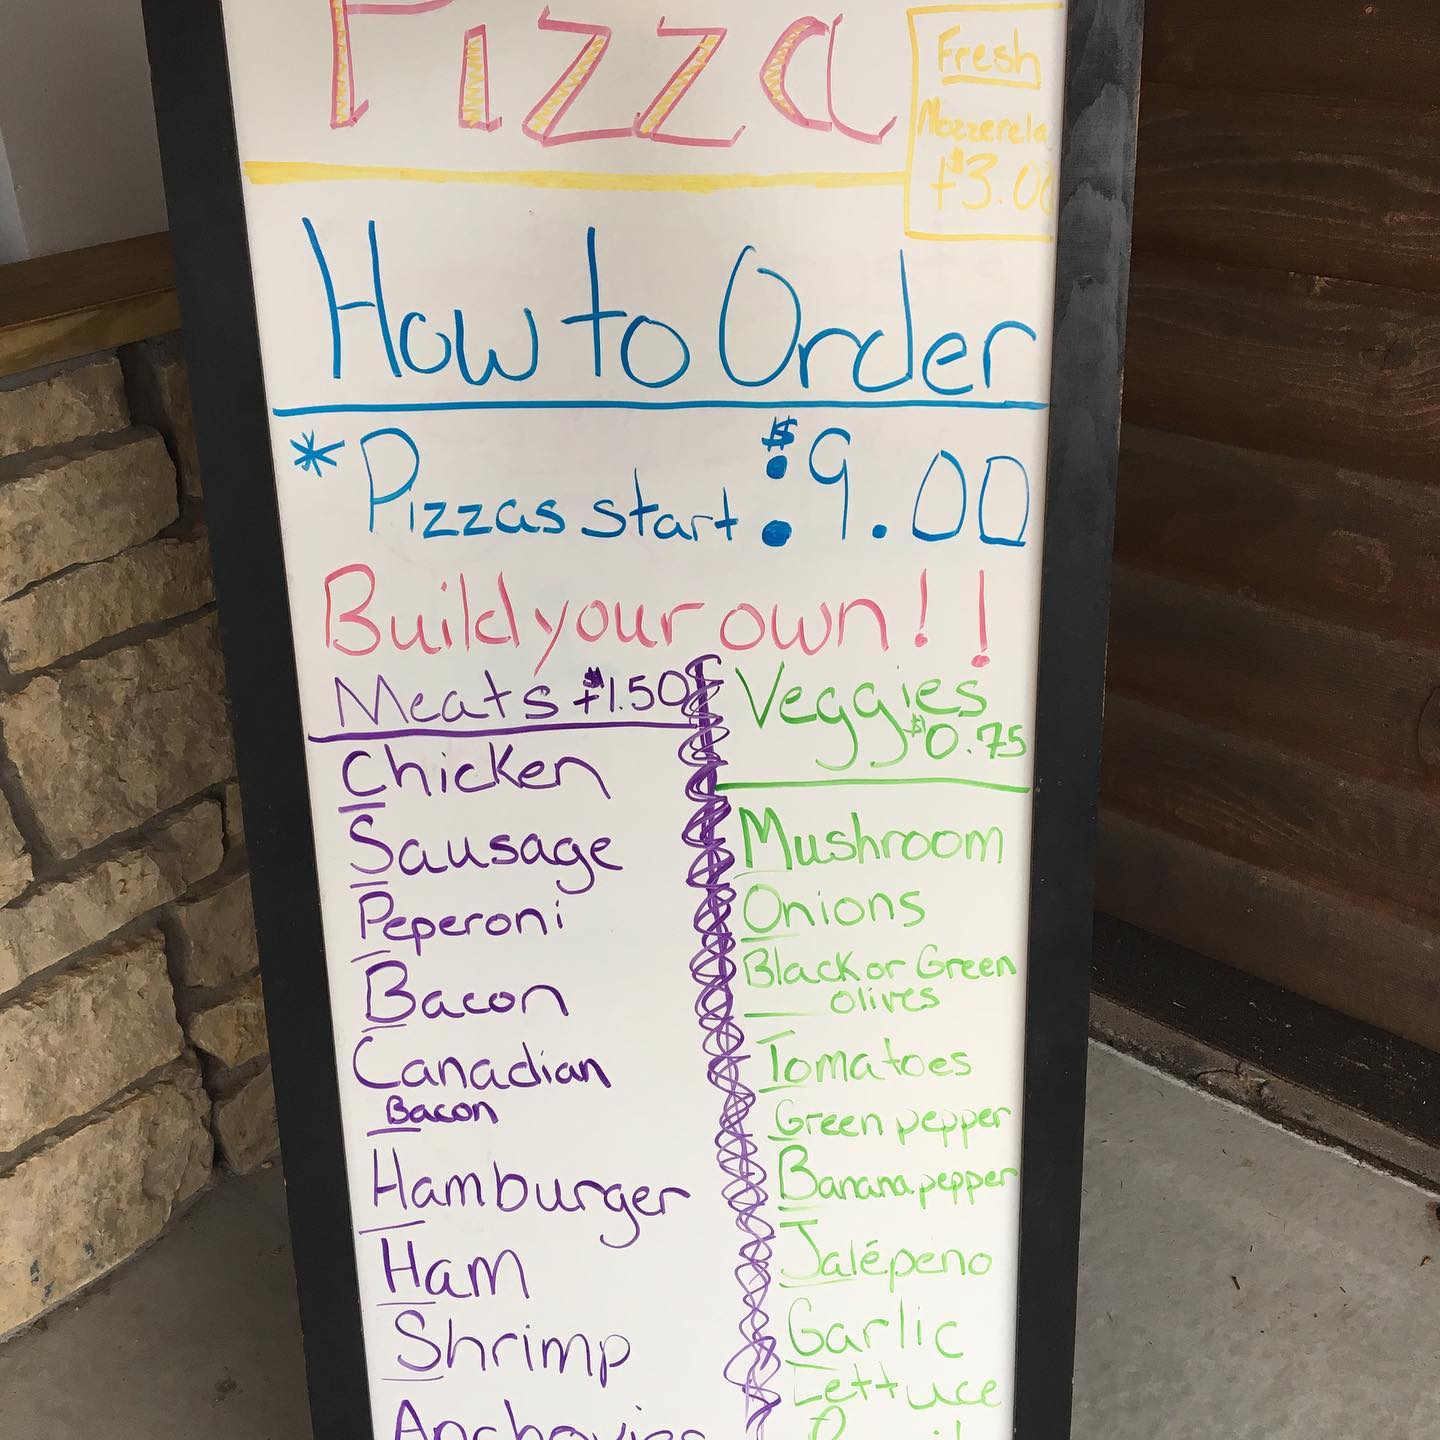 Pizza
Fresh
Mozzerela
+$3.00
How to Order
*Pizzas start: $9.00
Build your own!!
Meats +$1.50
Chicken
Sausage
Peperoni
Bacon
Canadian
Bacon
Hamburger
Ham
Shrimp
Anchovies
Veggies
$0.75
Mushroom
Onions
Black or Green
olives
Tomatoes
Green pepper
Banana pepper
Jalépeno
Garlic
Lettuce